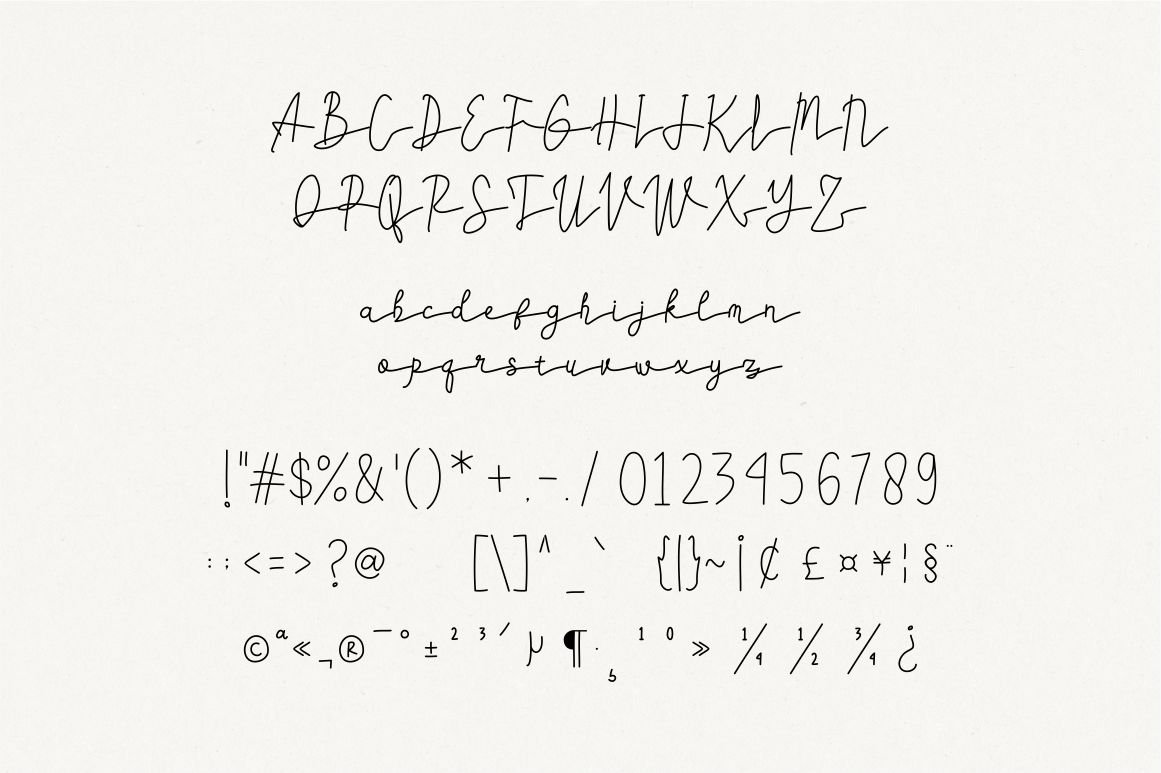 ABCDEFGHIJKLMN
OPQRSTUVWXYZ
abcdefghijklmn
opqrstuvwxyz
!"#$%&'()*+,-./0123456789
:;<=>?@[\]^_`{|}~¡¢£¤¥¦§¨
©ª«¬®¯°±²³´µ¶·¸¹º»¼½¾¿